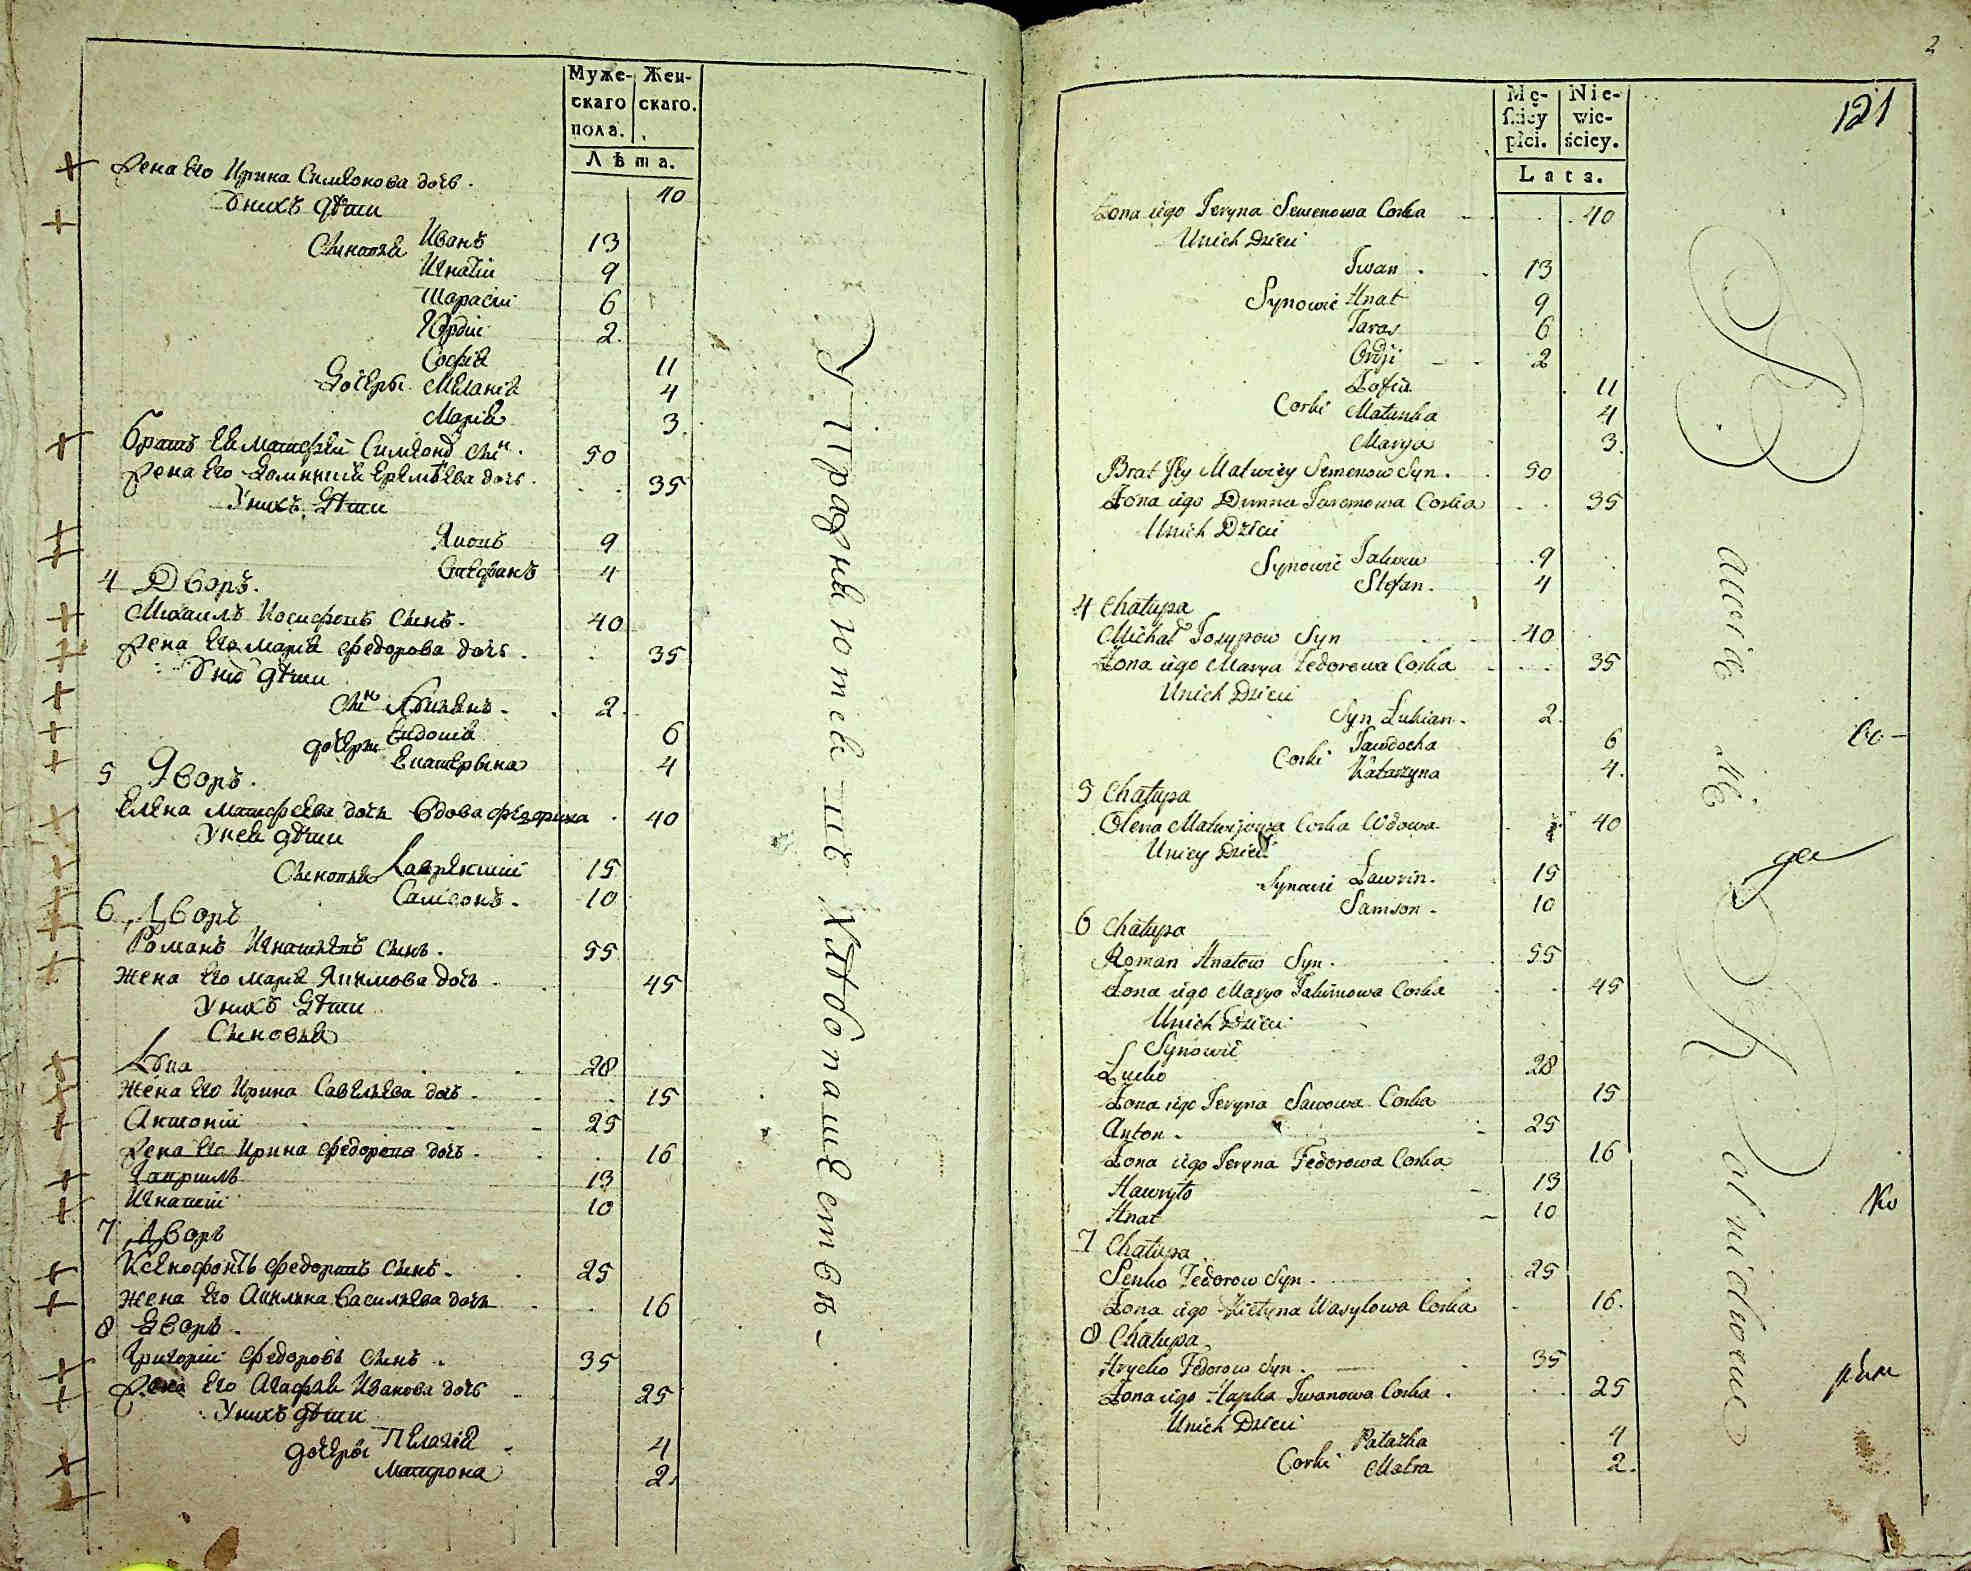 Муже-
скаго
пола.
Жен-
скаго.
Лѣта.
Жена его Ирина Симеонова дочь. 40
У нихъ дѣти
Сыновья Иванъ 13
Игнатий 9
Тарасий 6
2
София 11
Дочери Мелания 4
Мария 3
Братъ ей Матфей Симеоновъ сынъ. 50
Жена его Еремѣева дочь. 35
У нихъ дѣти
Яковъ 9
Стефанъ 4
4 Дворъ.
Михаилъ Иосифовъ сынъ. 40
Жена его Мария Федорова дочь. 35
У нихъ дѣти
Сынъ Лукиянъ. 2
Дочери Евдокия 6
Екатерина 4
5 Дворъ.
Елена Матфеева дочь вдова 40
У ней дѣти
Сыновья Лаврентий 15
Самсонъ. 10
6 Дворъ
Романъ Игнатьевъ сынъ. 55
Жена его Мария Якимова дочь 45
У нихъ дѣти
Сыновья
Лука 28
Жена его Ирина Савельева дочь. 15
Антоний 25
Жена его Ирина Федорова дочь. 16
Гавриилъ 13
Игнатий 10
7 Дворъ
Ксенофонтъ Федоровъ сынъ. 25
Жена его Акилина Васильева дочь 16
8 Дворъ.
Григорий Федоровъ сынъ. 35
Жена его Агафия Иванова дочь 25
У нихъ дѣти
Дочери Пелагия 4
Матрона 2.
Упражняются въ хлѣбопашествѣ.
2
121
Mę-
skiey
płci.
Nie-
wie-
ściey.
Lata.
Żona iego Jeryna Semenowa Corka 40
Unich Dzieci
Iwan. 13
Synowie Hnat 9
Taras 6
Ordji 2
Zofia 11
Corki Matunka 4
Marya 3.
Brat Jey Matwiey Semenow Syn. 50
Żona iego Dumna Jaremowa Corka 35
Unich Dzieci
Synowie Jakow 9
Stefan. 4
4 Chałupa
Michał Josypow Syn 40
Żona iego Marya Fedorowa Corka 35
Unich Dzieci
Syn Lukian. 2.
Corki Jawdocha 6
Katarzyna 4.
5 Chałupa
Olena Matwijowa Corka Wdowa 40
Uniey Dzieci
Synowie Lawrin. 15
Samson. 10
6 Chałupa
Roman Hnatow Syn. 55
Żona iego Marya Jakimowa Corka 45
Unich Dzieci
Synowie
Łucko 28
Żona iego Jeryna Sawowa Corka 15
Anton. 25
Żona iego Jeryna Fedorowa Corka 16
Hawryło 13
Hnat 10
7 Chałupa
Senko Fedorow Syn. 25
Żona iego Kielyna Wasylowa Corka 16.
8 Chałupa
Hrycko Fedorow Syn. 35
Żona iego Hapka Iwanowa Corka. 25
Unich Dzieci
Pałażka 4
Corki Motra 2.
Bawie się Rolnictwem